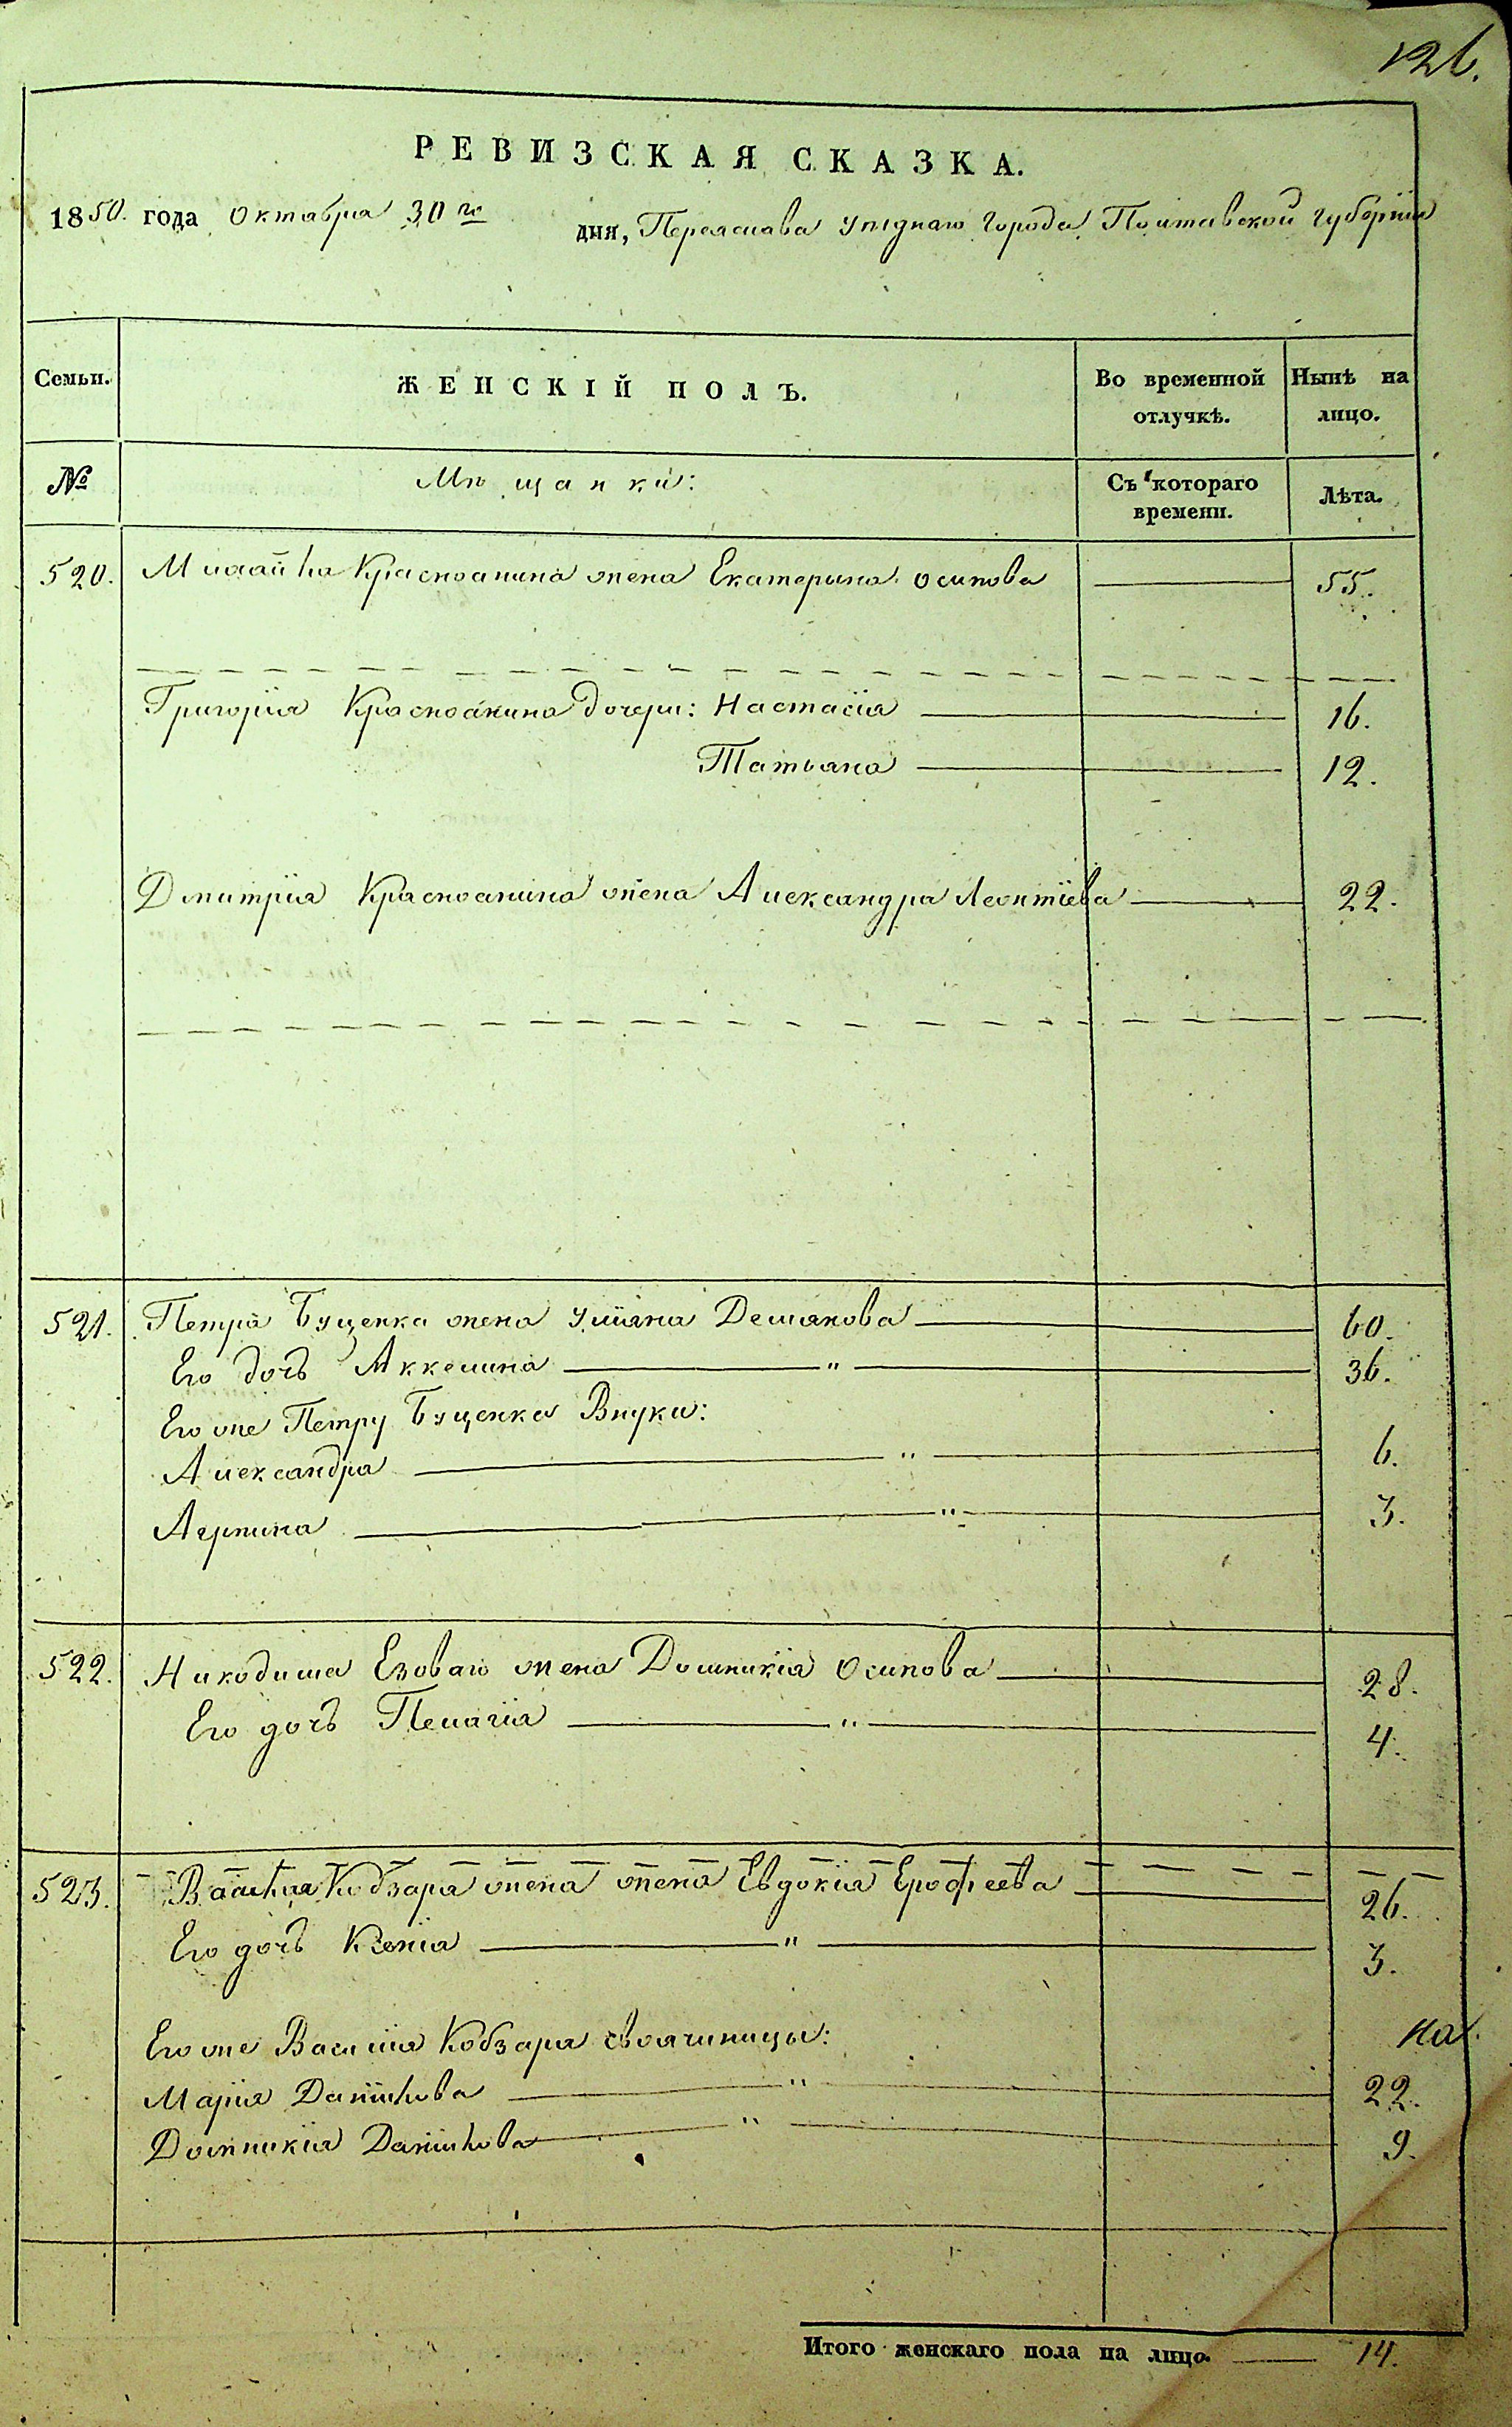 126.
РЕВИЗСКАЯ СКАЗКА.
1850. года Октября 30го дня, Переяслава уѣзднаго города Полтавской губерніи
Семьи. ЖЕНСКІЙ ПОЛЪ. Во временной отлучкѣ. Нынѣ на лицо.
№ Мѣщанки: Съ котораго времени. Лѣта.
520. Михайла жена Екатерина Осипова 55.
Григорія дочери: Настасія 16.
Татьяна 12.
Дмитрія жена Александра Леонтіева 22.
521. Петра Буценка жена Уліяна Демянова 60.
Его дочь Аккелина " 36.
Его же Петру Буценка Внуки:
Александра " 6.
" 3.
522. Никодима Езоваго жена Домникія Осипова 28.
Его дочь Пелагія " 4.
523. Василія Кобзаря жена жена Евдокія Ерофеева 26.
Его дочь Ксенія " 3.
Его же Василія Кобзаря своячиницы: на
Марія Данійлова " 22.
Домникія Данійлова " 9.
Итого женскаго пола на лицо 14.